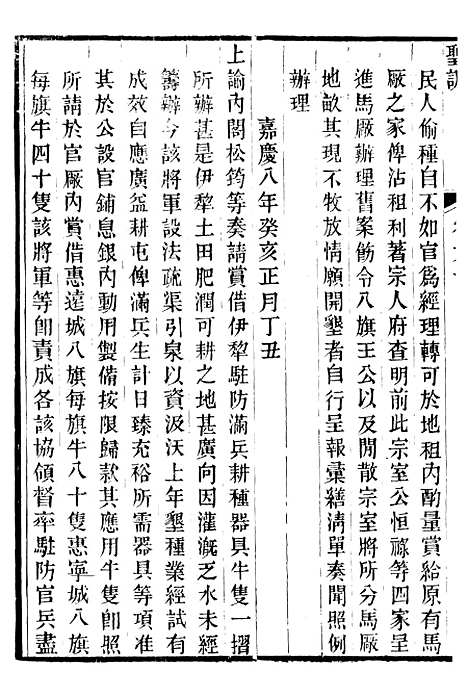 聖訓
民人偷種自不如官爲經理轉可於地租內酌量賞給原有馬
厰之家俾沾租利著宗人府查明前此宗室公恒祿等四家呈
進馬厰辦理舊案飭令八旗王公以及閒散宗室將所分馬厰
地畝其現不牧放情願開墾者自行呈報彙繕清單奏聞照例
辦理
嘉慶八年癸亥正月丁丑
上諭內閣松筠等奏請賞借伊犂駐防滿兵耕種器具牛隻一摺
所辦甚是伊犂土田肥潤可耕之地甚廣向因灌漑乏水未經
籌辦今該將軍設法疏渠引泉以資汲沃上年墾種業經試有
成效自應廣益耕屯俾滿兵生計日臻充裕所需器具等項准
其於公設官鋪息銀內動用製備按限歸款其應用牛隻卽照
所請於官厰內賞借惠遠城八旗每旗牛八十隻惠寧城八旗
每旗牛四十隻該將軍等卽責成各該協領督率駐防官兵盡